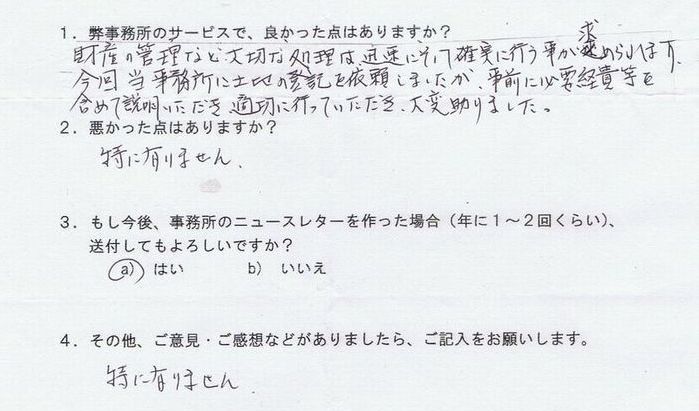 1．弊事務所のサービスで、良かった点はありますか？
財産の管理など大切な処理は迅速にそして確実に行う事が求められます。
今回当事務所に土地の登記を依頼しましたが、事前に必要経費等を
含めて説明いただき適切に行っていただき、大変助りました。
2．悪かった点はありますか？
特に有りません。
3．もし今後、事務所のニュースレターを作った場合（年に1～2回くらい）、
送付してもよろしいですか？
a) はい　b) いいえ
4．その他、ご意見・ご感想などがありましたら、ご記入をお願いします。
特に有りません。